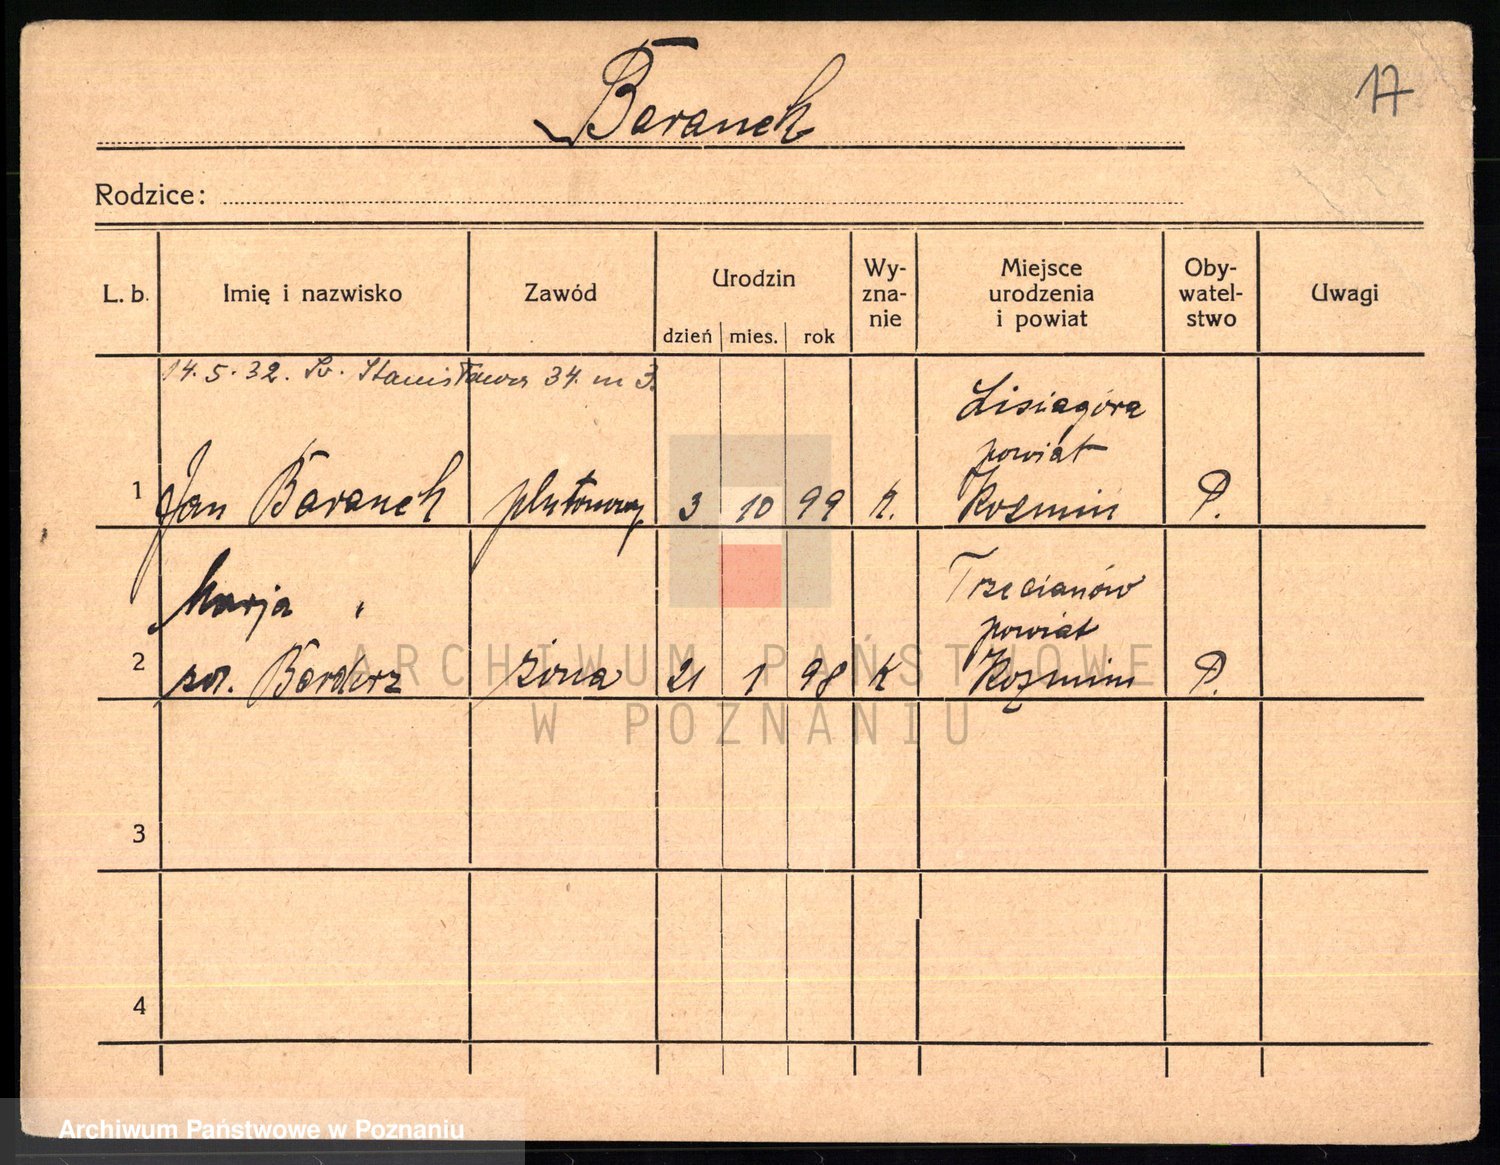 17
Baranek
Rodzice:
L. b.
Imię i nazwisko
Zawód
Urodzin
dzień mies. rok
Wy-
zna-
nie
Miejsce
urodzenia
i powiat
Oby-
watel-
stwo
Uwagi
14. 5. 32. Św. Stanisława 34. m 3.
1
Jan Baranek
plutonowy
3 10 99
K.
Lisiagóra
powiat
Kozmin
P.
Marja "
2
zona
21 1 98
K
Trzecianów
powiat
Kozmin
P.
3
4
ARCHIWUM PAŃSTWOWE
W POZNANIU
Archiwum Państwowe w Poznaniu